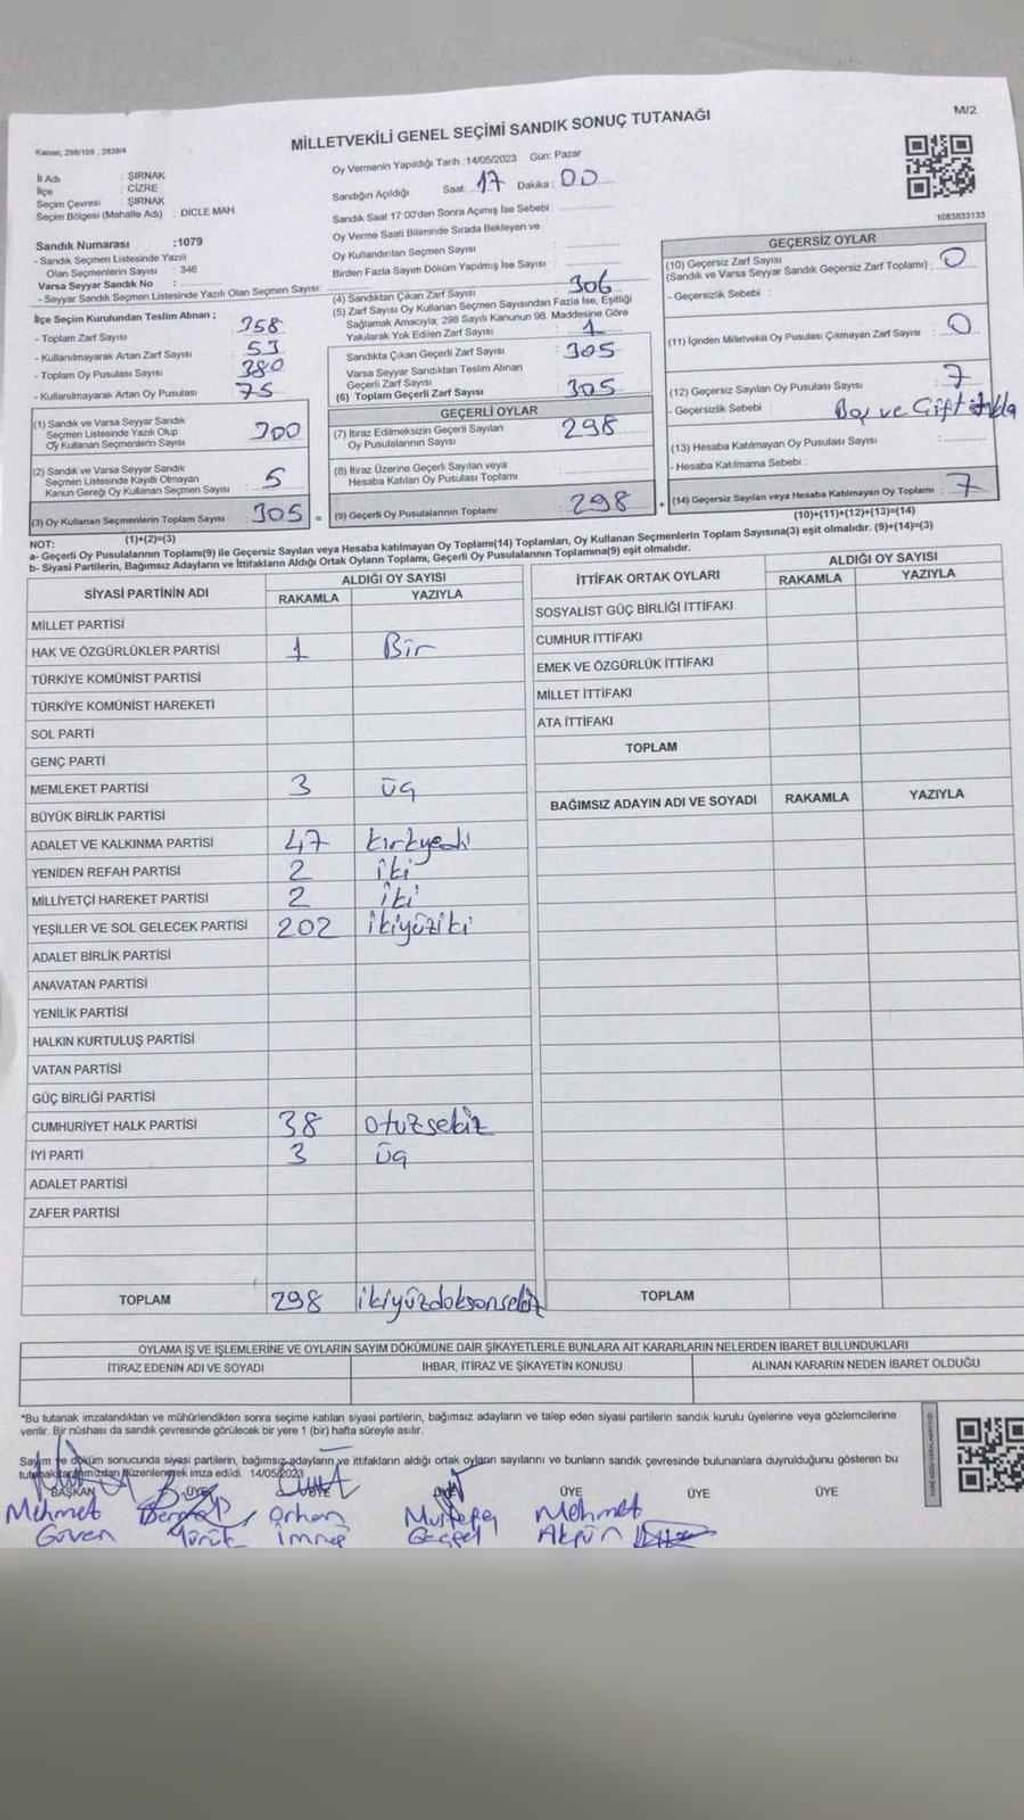 M/2
MİLLETVEKİLİ GENEL SEÇİMİ SANDIK SONUÇ TUTANAĞI
İl Adı : ŞIRNAK
İlçe : CİZRE
Seçim Çevresi : ŞIRNAK
Seçim Bölgesi (Mahalle Adı) : DİCLE MAH
Oy Vermenin Yapıldığı Tarih :14/05/2023 Gün: Pazar
Sandığın Açıldığı Saat 17 Dakika: 00
Sandık Saat 17:00'den Sonra Açımış İse Sebebi
Oy Verme Saati Bitiminde Sırada Bekleyen ve
Oy Kullandırılan Seçmen Sayısı
Birden Fazla Sayım Döküm Yapılmış İse Sayısı
1083833133
Sandık Numarası :1079
- Sandık Seçmen Listesinde Yazılı
Olan Seçmenlerin Sayısı : 346
Varsa Seyyar Sandık No :
- Seyyar Sandık Seçmen Listesinde Yazılı Olan Seçmen Sayısı:
İlçe Seçim Kurulundan Teslim Alınan ;
- Toplam Zarf Sayısı 358
- Kullanılmayarak Artan Zarf Sayısı 53
- Toplam Oy Pusulası Sayısı 380
- Kullanılmayarak Artan Oy Pusulası 75
(1) Sandık ve Varsa Seyyar Sandık
Seçmen Listesinde Yazılı Olup
Oy Kullanan Seçmenlerin Sayısı 300
(2) Sandık ve Varsa Seyyar Sandık
Seçmen Listesinde Kayıtlı Olmayan
Kanun Gereği Oy Kullanan Seçmen Sayısı 5
(3) Oy Kullanan Seçmenlerin Toplam Sayısı 305
(1)+(2)=(3)
(4) Sandıktan Çıkan Zarf Sayısı 306
(5) Zarf Sayısı Oy Kullanan Seçmen Sayısından Fazla İse, Eşitliği
Sağlamak Amacıyla, 298 Sayılı Kanunun 98. Maddesine Göre
Yakılarak Yok Edilen Zarf Sayısı 1
Sandıkta Çıkan Geçerli Zarf Sayısı : 305
Varsa Seyyar Sandıktan Teslim Alınan
Geçerli Zarf Sayısı
(6) Toplam Geçerli Zarf Sayısı 305
GEÇERLİ OYLAR
(7) İtiraz Edilmeksizin Geçerli Sayılan
Oy Pusulalarının Sayısı 298
(8) İtiraz Üzerine Geçerli Sayılan veya
Hesaba Katılan Oy Pusulası Toplamı
(9) Geçerli Oy Pusulalarının Toplamı : 298
GEÇERSİZ OYLAR
(10) Geçersiz Zarf Sayısı
(Sandık ve Varsa Seyyar Sandık Geçersiz Zarf Toplamı) : 0
- Geçersizlik Sebebi :
(11) İçinden Milletvekili Oy Pusulası Çıkmayan Zarf Sayısı : 0
(12) Geçersiz Sayılan Oy Pusulası Sayısı 7
- Geçersizlik Sebebi Boş ve Çift
(13) Hesaba Katılmayan Oy Pusulası Sayısı
- Hesaba Katılmama Sebebi :
(14) Geçersiz Sayılan veya Hesaba Katılmayan Oy Toplamı : 7
(10)+(11)+(12)+(13)=(14)
NOT:
a- Geçerli Oy Pusulalarının Toplamı(9) ile Geçersiz Sayılan veya Hesaba katılmayan Oy Toplamı(14) Toplamları, Oy Kullanan Seçmenlerin Toplam Sayısına(3) eşit olmalıdır. (9)+(14)=(3)
b- Siyasi Partilerin, Bağımsız Adayların ve İttifakların Aldığı Ortak Oyların Toplamı, Geçerli Oy Pusulalarının Toplamına(9) eşit olmalıdır.
SİYASİ PARTİNİN ADI ALDIĞI OY SAYISI
RAKAMLA YAZIYLA
MİLLET PARTİSİ
HAK VE ÖZGÜRLÜKLER PARTİSİ 1 Bir
TÜRKİYE KOMÜNİST PARTİSİ
TÜRKİYE KOMÜNİST HAREKETİ
SOL PARTİ
GENÇ PARTİ
MEMLEKET PARTİSİ 3 üç
BÜYÜK BİRLİK PARTİSİ
ADALET VE KALKINMA PARTİSİ 47 kırkyedi
YENİDEN REFAH PARTİSİ 2 iki
MİLLİYETÇİ HAREKET PARTİSİ 2 iki
YEŞİLLER VE SOL GELECEK PARTİSİ 202 ikiyüziki
ADALET BİRLİK PARTİSİ
ANAVATAN PARTİSİ
YENİLİK PARTİSİ
HALKIN KURTULUŞ PARTİSİ
VATAN PARTİSİ
GÜÇ BİRLİĞİ PARTİSİ
CUMHURİYET HALK PARTİSİ 38 otuzsekiz
İYİ PARTİ 3 üç
ADALET PARTİSİ
ZAFER PARTİSİ
TOPLAM 298 ikiyüzdoksansekiz
İTTİFAK ORTAK OYLARI ALDIĞI OY SAYISI
RAKAMLA YAZIYLA
SOSYALİST GÜÇ BİRLİĞİ İTTİFAKI
CUMHUR İTTİFAKI
EMEK VE ÖZGÜRLÜK İTTİFAKI
MİLLET İTTİFAKI
ATA İTTİFAKI
TOPLAM
BAĞIMSIZ ADAYIN ADI VE SOYADI RAKAMLA YAZIYLA
TOPLAM
OYLAMA İŞ VE İŞLEMLERİNE VE OYLARIN SAYIM DÖKÜMÜNE DAİR ŞİKAYETLERLE BUNLARA AİT KARARLARIN NELERDEN İBARET BULUNDUKLARI
İTİRAZ EDENİN ADI VE SOYADI İHBAR, İTİRAZ VE ŞİKAYETİN KONUSU ALINAN KARARIN NEDEN İBARET OLDUĞU
*Bu tutanak imzalandıktan ve mühürlendikten sonra seçime katılan siyasi partilerin, bağımsız adayların ve talep eden siyasi partilerin sandık kurulu üyelerine veya gözlemcilerine
verilir. Bir nüshası da sandık çevresinde görülecek bir yere 1 (bir) hafta süreyle asılır.
Sayım ve döküm sonucunda siyasi partilerin, bağımsız adayların ve ittifakların aldığı ortak oyların sayılarını ve bunların sandık çevresinde bulunanlara duyrulduğunu gösteren bu
düzenlenerek imza edildi. 14/05/2023
BAŞKAN ÜYE ÜYE ÜYE ÜYE ÜYE
Mehmet Orhan Mustafa Mehmet
Güven Yürük Akgün